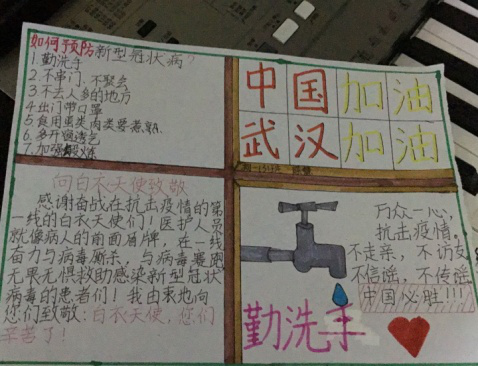 如何预防新型冠状病?
1.勤洗手
2.不串门、不聚会
3.不去人多的地方
4.出门带口罩
5.食用蛋类肉类要煮熟
6.多开窗透气
7.加强锻炼
中国加油
武汉加油
向白衣天使致敬
感谢奋战在抗击疫情的第
一线的白衣天使们!医护人员
就像病人的前面盾牌,在一线
奋力与病毒厮杀,与病毒赛跑
无果无惧救助感染新型冠状
病毒的患者们!我由衷地向
您们致敬:白衣天使,您们
辛苦了!
万众一心,
抗击疫情。
不走亲,不访友
不信谣,不传谣
中国必胜!!!
勤洗手